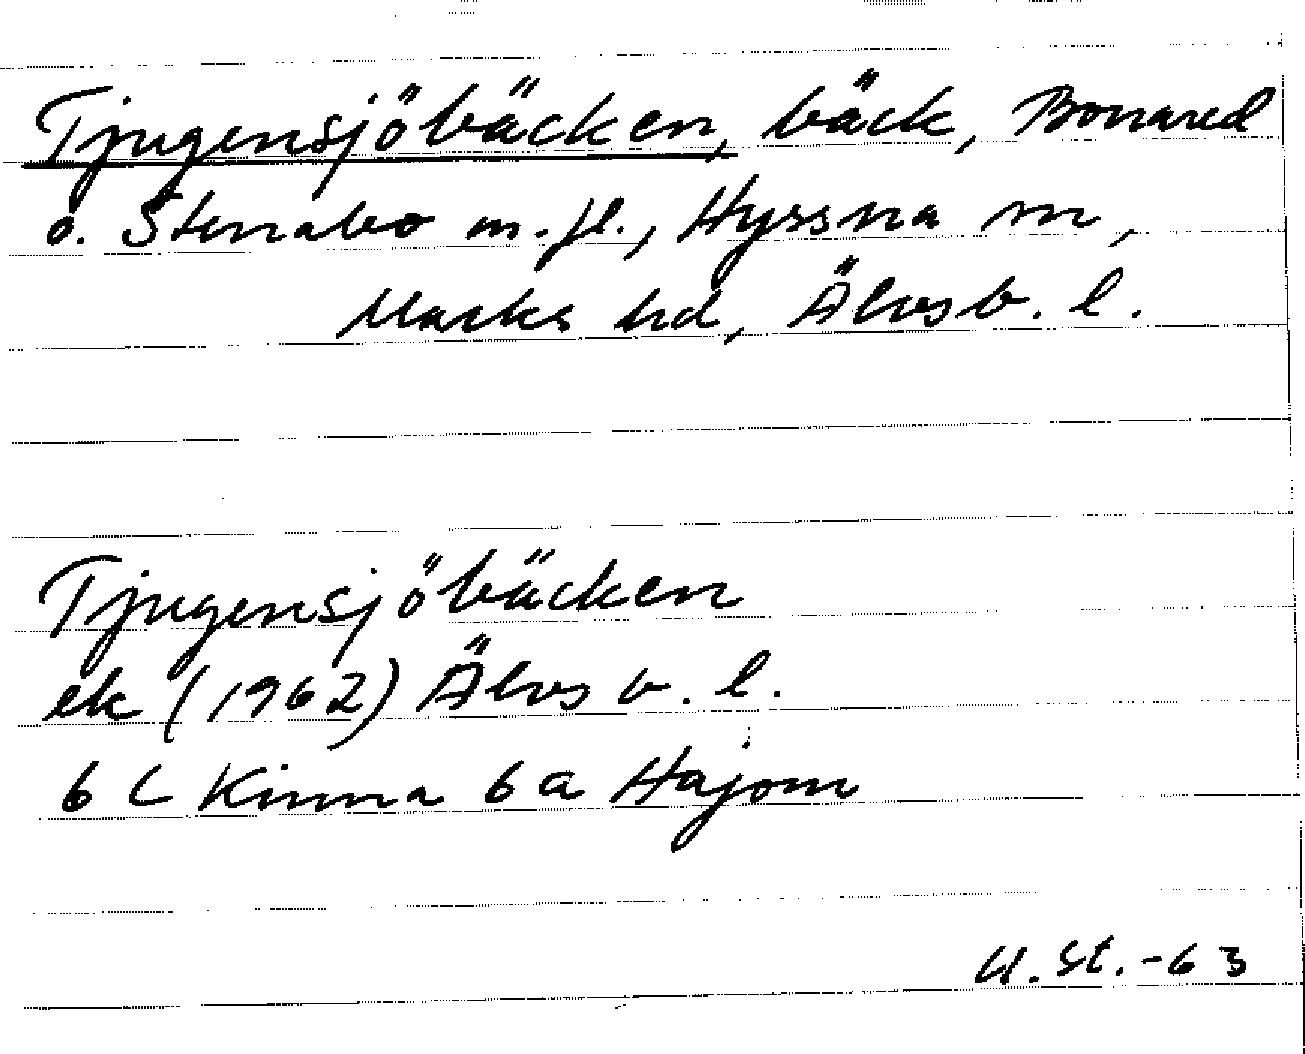 Tjugensjöbäcken, bäck, Bonared
o. Stenabo m.fl., Hyssna sn,
Marks hd, Älvsb. l.
Tjugensjöbäcken
ek (1962) Älvsb. l.
6 C Kinna 6a Hajom
U. St. -63